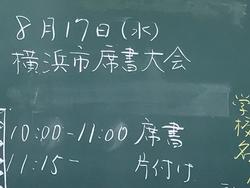 8月17日(水)
横浜市席書大会
10:00-11:00 席書
11:15- 片付け
学校名